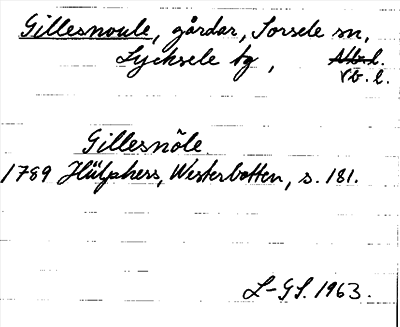 Gillesnoule, gårdar, Sorsele sn,
Lycksele tg, Nb. l.
Vb. l.
Gillesnöle
1789 Hülphers, Westerbotten, s. 181.
L-GS. 1963.